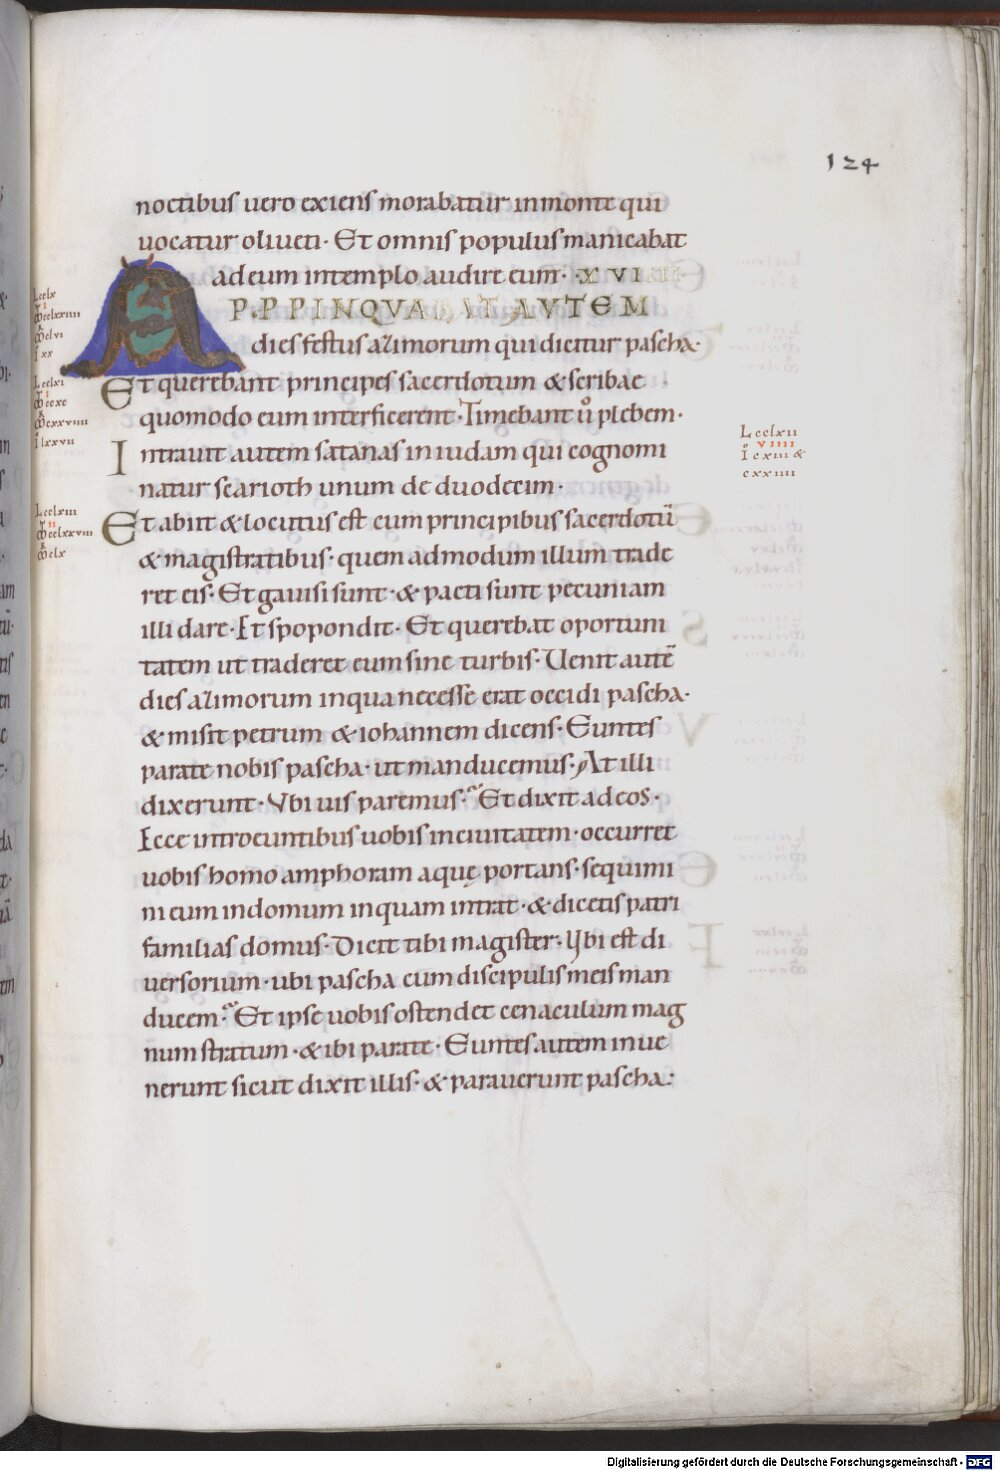 124
noctibus uero exiens morabatur in monte qui
uocatur oliueti · Et omnis populus manicabat
ad eum in templo audire eum · XVIIII
APPROPINQVABAT AVTEM
dies festus azimorum qui dicitur pascha ·
Et querebant principes sacerdotum & scribae
quomodo eum interficerent · Timebant uͦ plebem ·
Intrauit autem satanas in iudam qui cognomi
natur scarioth unum de duodecim ·
Et abiit & locutus est cum principibus sacerdotū
& magistratibus · quem admodum illum trade
ret eis · Et gauisi sunt · & pacti sunt pecuniam
illi dare · Et spopondit · Et querebat oportuni
tatem ut traderet eum sine turbis · Uenit autē
dies azimorum in qua necesse erat occidi pascha ·
& misit petrum & iohannem dicens · Euntes
parate nobis pascha · ut manducemus · At illi
dixerunt · Vbi uis paremus ? Et dixit ad eos ·
Ecce introeuntibus uobis in ciuitatem · occurret
uobis homo amphoram aquę portans · sequimi
ni eum in domum in quam intrat · & dicetis patri
familias domus · Dicit tibi magister · Ubi est di
uersorium · ubi pascha cum discipulis meis man
ducem ? Et ipse uobis ostendet cenaculum mag
num stratum · & ibi parate · Euntes autem inue
nerunt sicut dixit illis · & parauerunt pascha :
Lcclx
I
Mcclxxiiii
Mclvi
I xx
Lcclxi
I
Mccxc
Mcxxviiii
I lxxvii
Lcclxii
VIIII
I cxiii &
cxxiiii
Lcclxiii
II
Mcclxxviii
Mclx
Digitalisierung gefördert durch die Deutsche Forschungsgemeinschaft - DFG